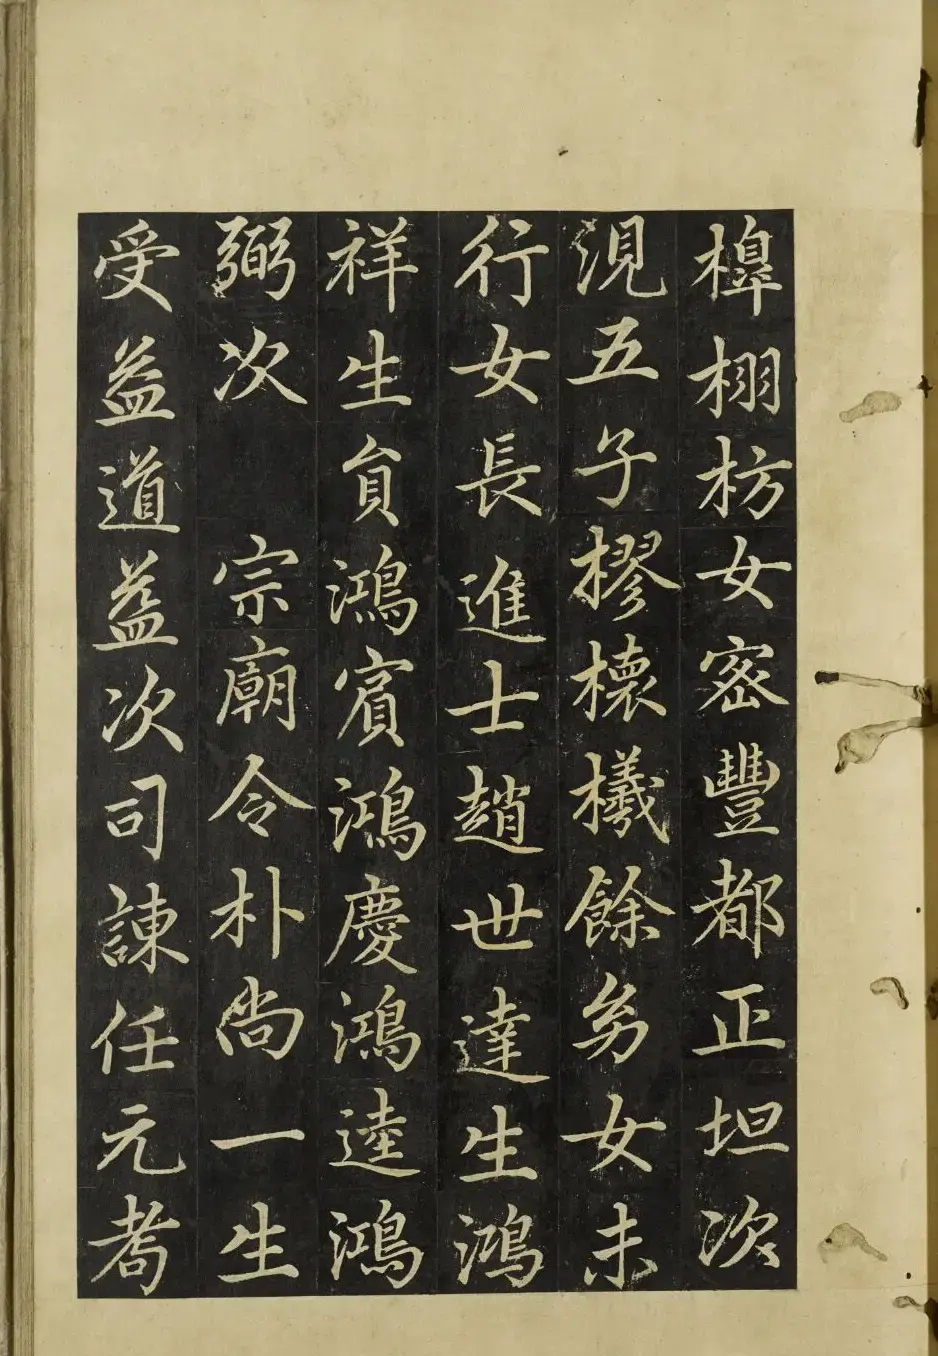 槔栩枋女密豐都正坦次
涀五子樛櫰檥餘幼女未
行女長進士趙世達生鴻
祥生貟鴻賓鴻慶鴻逵鴻
弼次宗廟令朴尚一生
受益道益次司諫任元耉